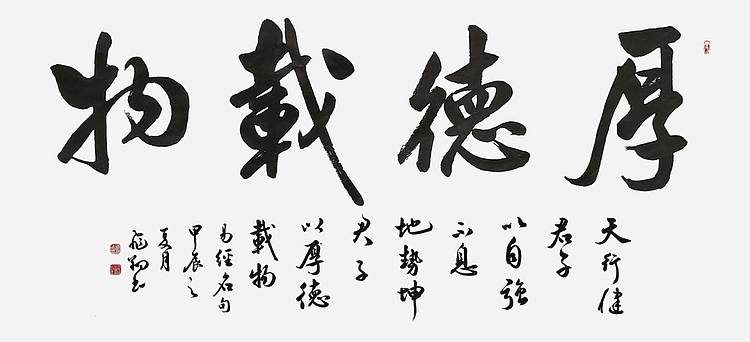 厚德載物
天行健
君子
以自強
不息
地勢坤
君子
以厚德
載物
易經名句
甲辰之
夏月